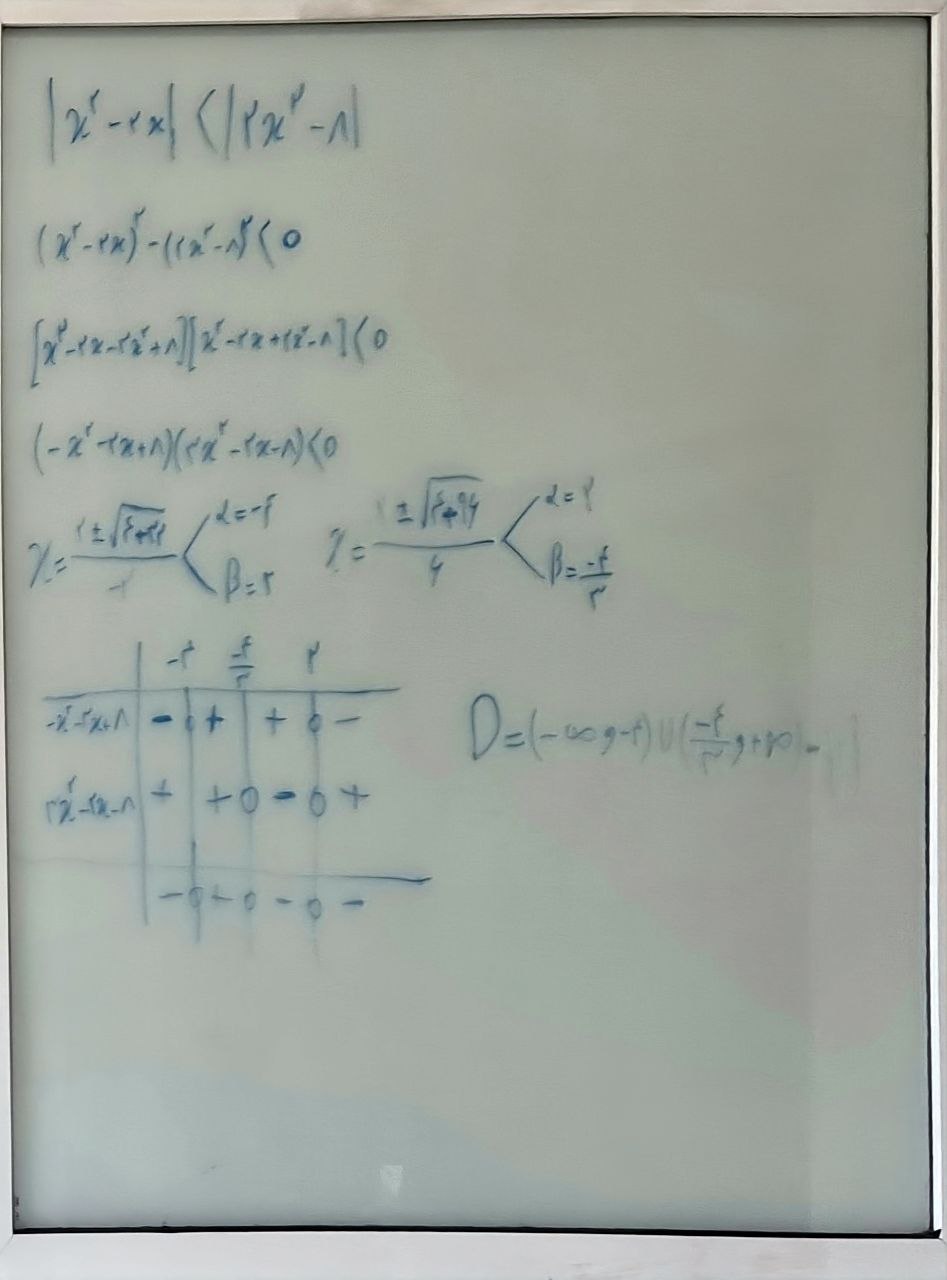 |x² - ۲x| < |۲x² - ۸|
(x² - ۲x)² - (۲x² - ۸)² < 0
[x² - ۲x - ۲x² + ۸][x² - ۲x + ۲x² - ۸] < 0
(-x² - ۲x + ۸)(۳x² - ۲x - ۸) < 0
x = (۲ ± √(۴+۳۲)) / -۲ α = -۴ β = ۲ x = (۲ ± √(۴+۹۶)) / ۶ α = ۲ β = -۴/۳
-۴ -۴/۳ ۲
-x² - ۲x + ۸ - 0 + + 0 -
۳x² - ۲x - ۸ + + 0 - 0 +
- 0 + 0 - 0 -
D = (-∞ و -۴) ∪ (-۴/۳ و +∞) -